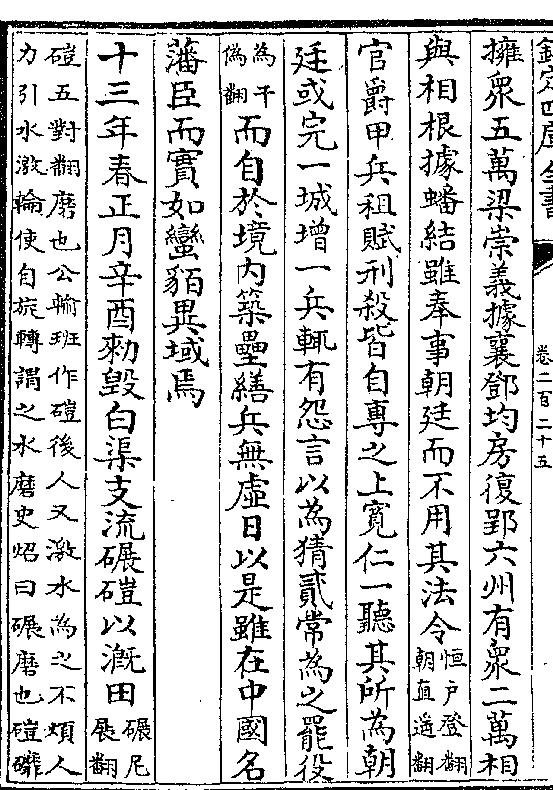 欽定四庫全書
卷二百二十五
擁衆五萬梁崇義據襄鄧均房復郢六州有衆二萬相
與相根據蟠結雖奉事朝廷而不用其法令恒户登翻
朝直遥翻
官爵甲兵租賦刑殺皆自專之上寛仁一聽其所為朝
廷或完一城增一兵輒有怨言以為猜貳常為之罷役
為于
偽翻而自於境内築壘繕兵無虛日以是雖在中國名
藩臣而實如蠻貊異域焉
十三年春正月辛酉勑毁白渠支流碾磑以溉田碾尼
展翻
磑五對翻磨也公輸班作磑後人又激水為之不煩人
力引水激輪使自旋轉謂之水磨史炤曰碾磨也磑䃺